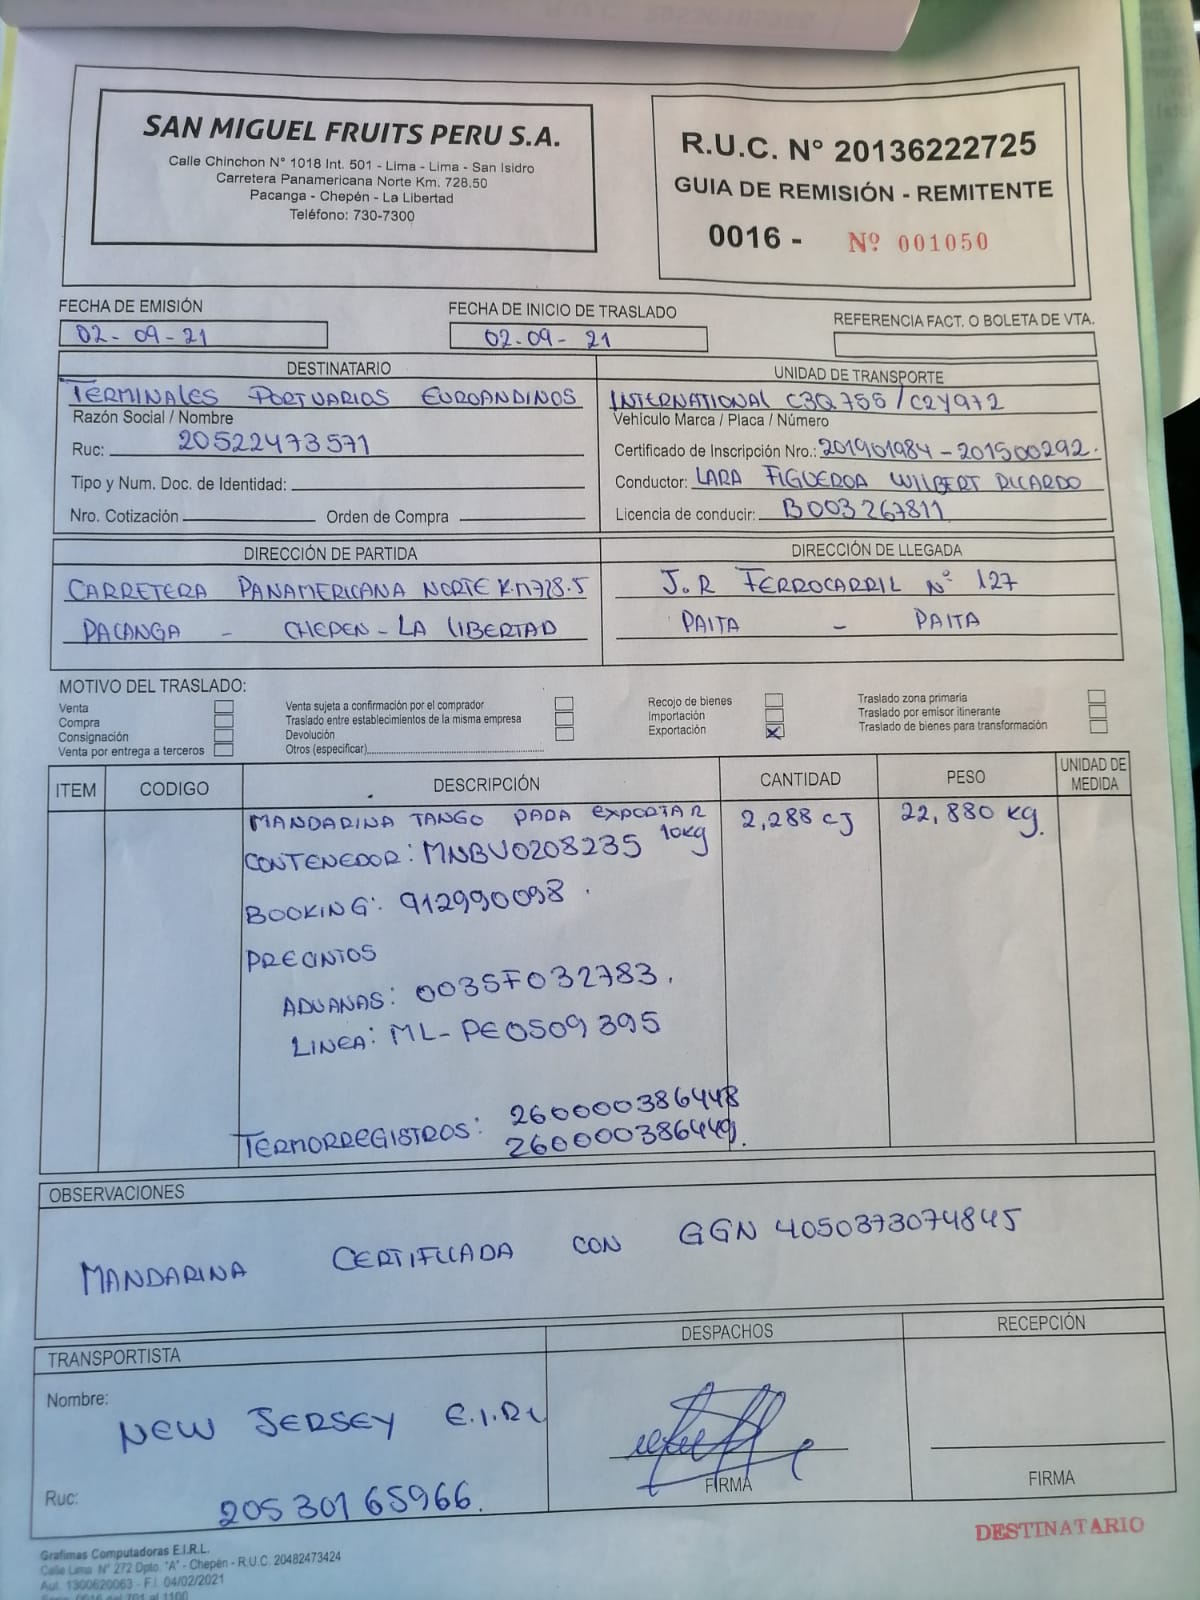 SAN MIGUEL FRUITS PERU S.A.
Calle Chinchon N° 1018 Int. 501 - Lima - Lima - San Isidro
Carretera Panamericana Norte Km. 728.50
Pacanga - Chepén - La Libertad
Teléfono: 730-7300
R.U.C. N° 20136222725
GUIA DE REMISIÓN - REMITENTE
0016 - Nº 001050
FECHA DE EMISIÓN
02-09-21
FECHA DE INICIO DE TRASLADO
02-09-21
REFERENCIA FACT. O BOLETA DE VTA.
DESTINATARIO
TERMINALES PORTUARIOS EUROANDINOS
Razón Social / Nombre
Ruc: 20522473571
Tipo y Num. Doc. de Identidad:
Nro. Cotización Orden de Compra
UNIDAD DE TRANSPORTE
INTERNATIONAL C3Q.755 / C2Y972
Vehículo Marca / Placa / Número
Certificado de Inscripción Nro.: 201901984 - 201500292.
Conductor: LARA FIGUEROA WILBERT RICARDO
Licencia de conducir: B003267811
DIRECCIÓN DE PARTIDA
CARRETERA PANAMERICANA NORTE K.M 728.5
PACANGA - CHEPEN - LA LIBERTAD
DIRECCIÓN DE LLEGADA
J.R FERROCARRIL N° 127
PAITA - PAITA
MOTIVO DEL TRASLADO:
Venta
Compra
Consignación
Venta por entrega a terceros
Venta sujeta a confirmación por el comprador
Traslado entre establecimientos de la misma empresa
Devolución
Otros (especificar)
Recojo de bienes
Importación
Exportación X
Traslado zona primaria
Traslado por emisor itinerante
Traslado de bienes para transformación
ITEM CODIGO DESCRIPCIÓN CANTIDAD PESO UNIDAD DE MEDIDA
MANDARINA TANGO PARA EXPORTAR 2,288 CJ 22,880 Kg.
10Kg
CONTENEDOR: MNBU0208235
BOOKING: 912990098.
PRECINTOS
ADUANAS: 003SF032783.
LINEA: ML-PE0509395
TERMORREGISTROS: 260000386448
260000386449.
OBSERVACIONES
MANDARINA CERTIFICADA CON GGN 4050373074845
TRANSPORTISTA
Nombre:
NEW JERSEY E.I.RL
Ruc: 20530165966.
DESPACHOS
FIRMA
RECEPCIÓN
FIRMA
DESTINATARIO
Grafimas Computadoras E.I.R.L.
Calle Lima N° 272 Dpto. "A" - Chepén - R.U.C. 20482473424
Aut. 1300620063 - F.I. 04/02/2021
Serie 0016 del 701 al 1100